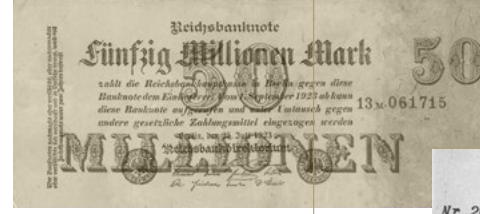 Reichsbanknote
Fünfzig Millionen Mark
50
50
zahlt die Reichsbankhauptkasse in Berlin gegen diese
Banknote dem Einlieferer. Vom 1. September 1923 ab kann
diese Banknote aufgerufen und unter Umtausch gegen
andere gesetzliche Zahlungsmittel eingezogen werden
13 M·061715
Berlin, den 25. Juli 1923
Reichsbankdirektorium
MILLIONEN
Nr. 2